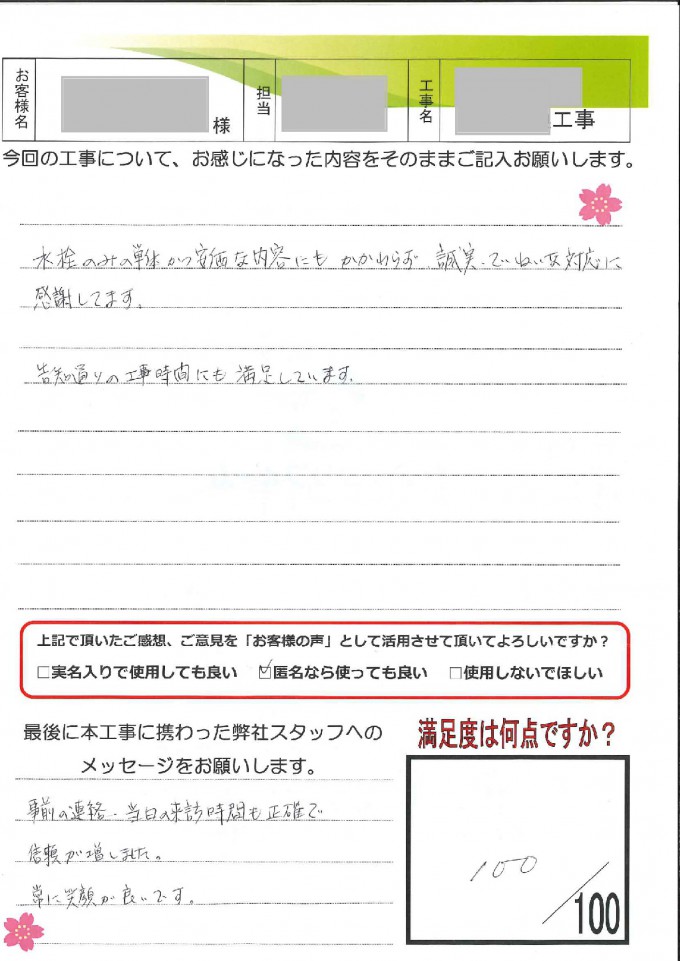 お客様名
様
担当
工事名
工事
今回の工事について、お感じになった内容をそのままご記入お願いします。
水栓のみの単体かつ安価な内容にもかかわらず 誠実・ていねいな対応に
感謝してます。
告知通りの工事時間にも満足しています。
上記で頂いたご感想、ご意見を「お客様の声」として活用させて頂いてよろしいですか？
□実名入りで使用しても良い ☑匿名なら使っても良い □使用しないでほしい
最後に本工事に携わった弊社スタッフへの
メッセージをお願いします。
事前の連絡・当日の来訪時間も正確で
信頼が増しました。
常に笑顔が良いです。
満足度は何点ですか？
100／100